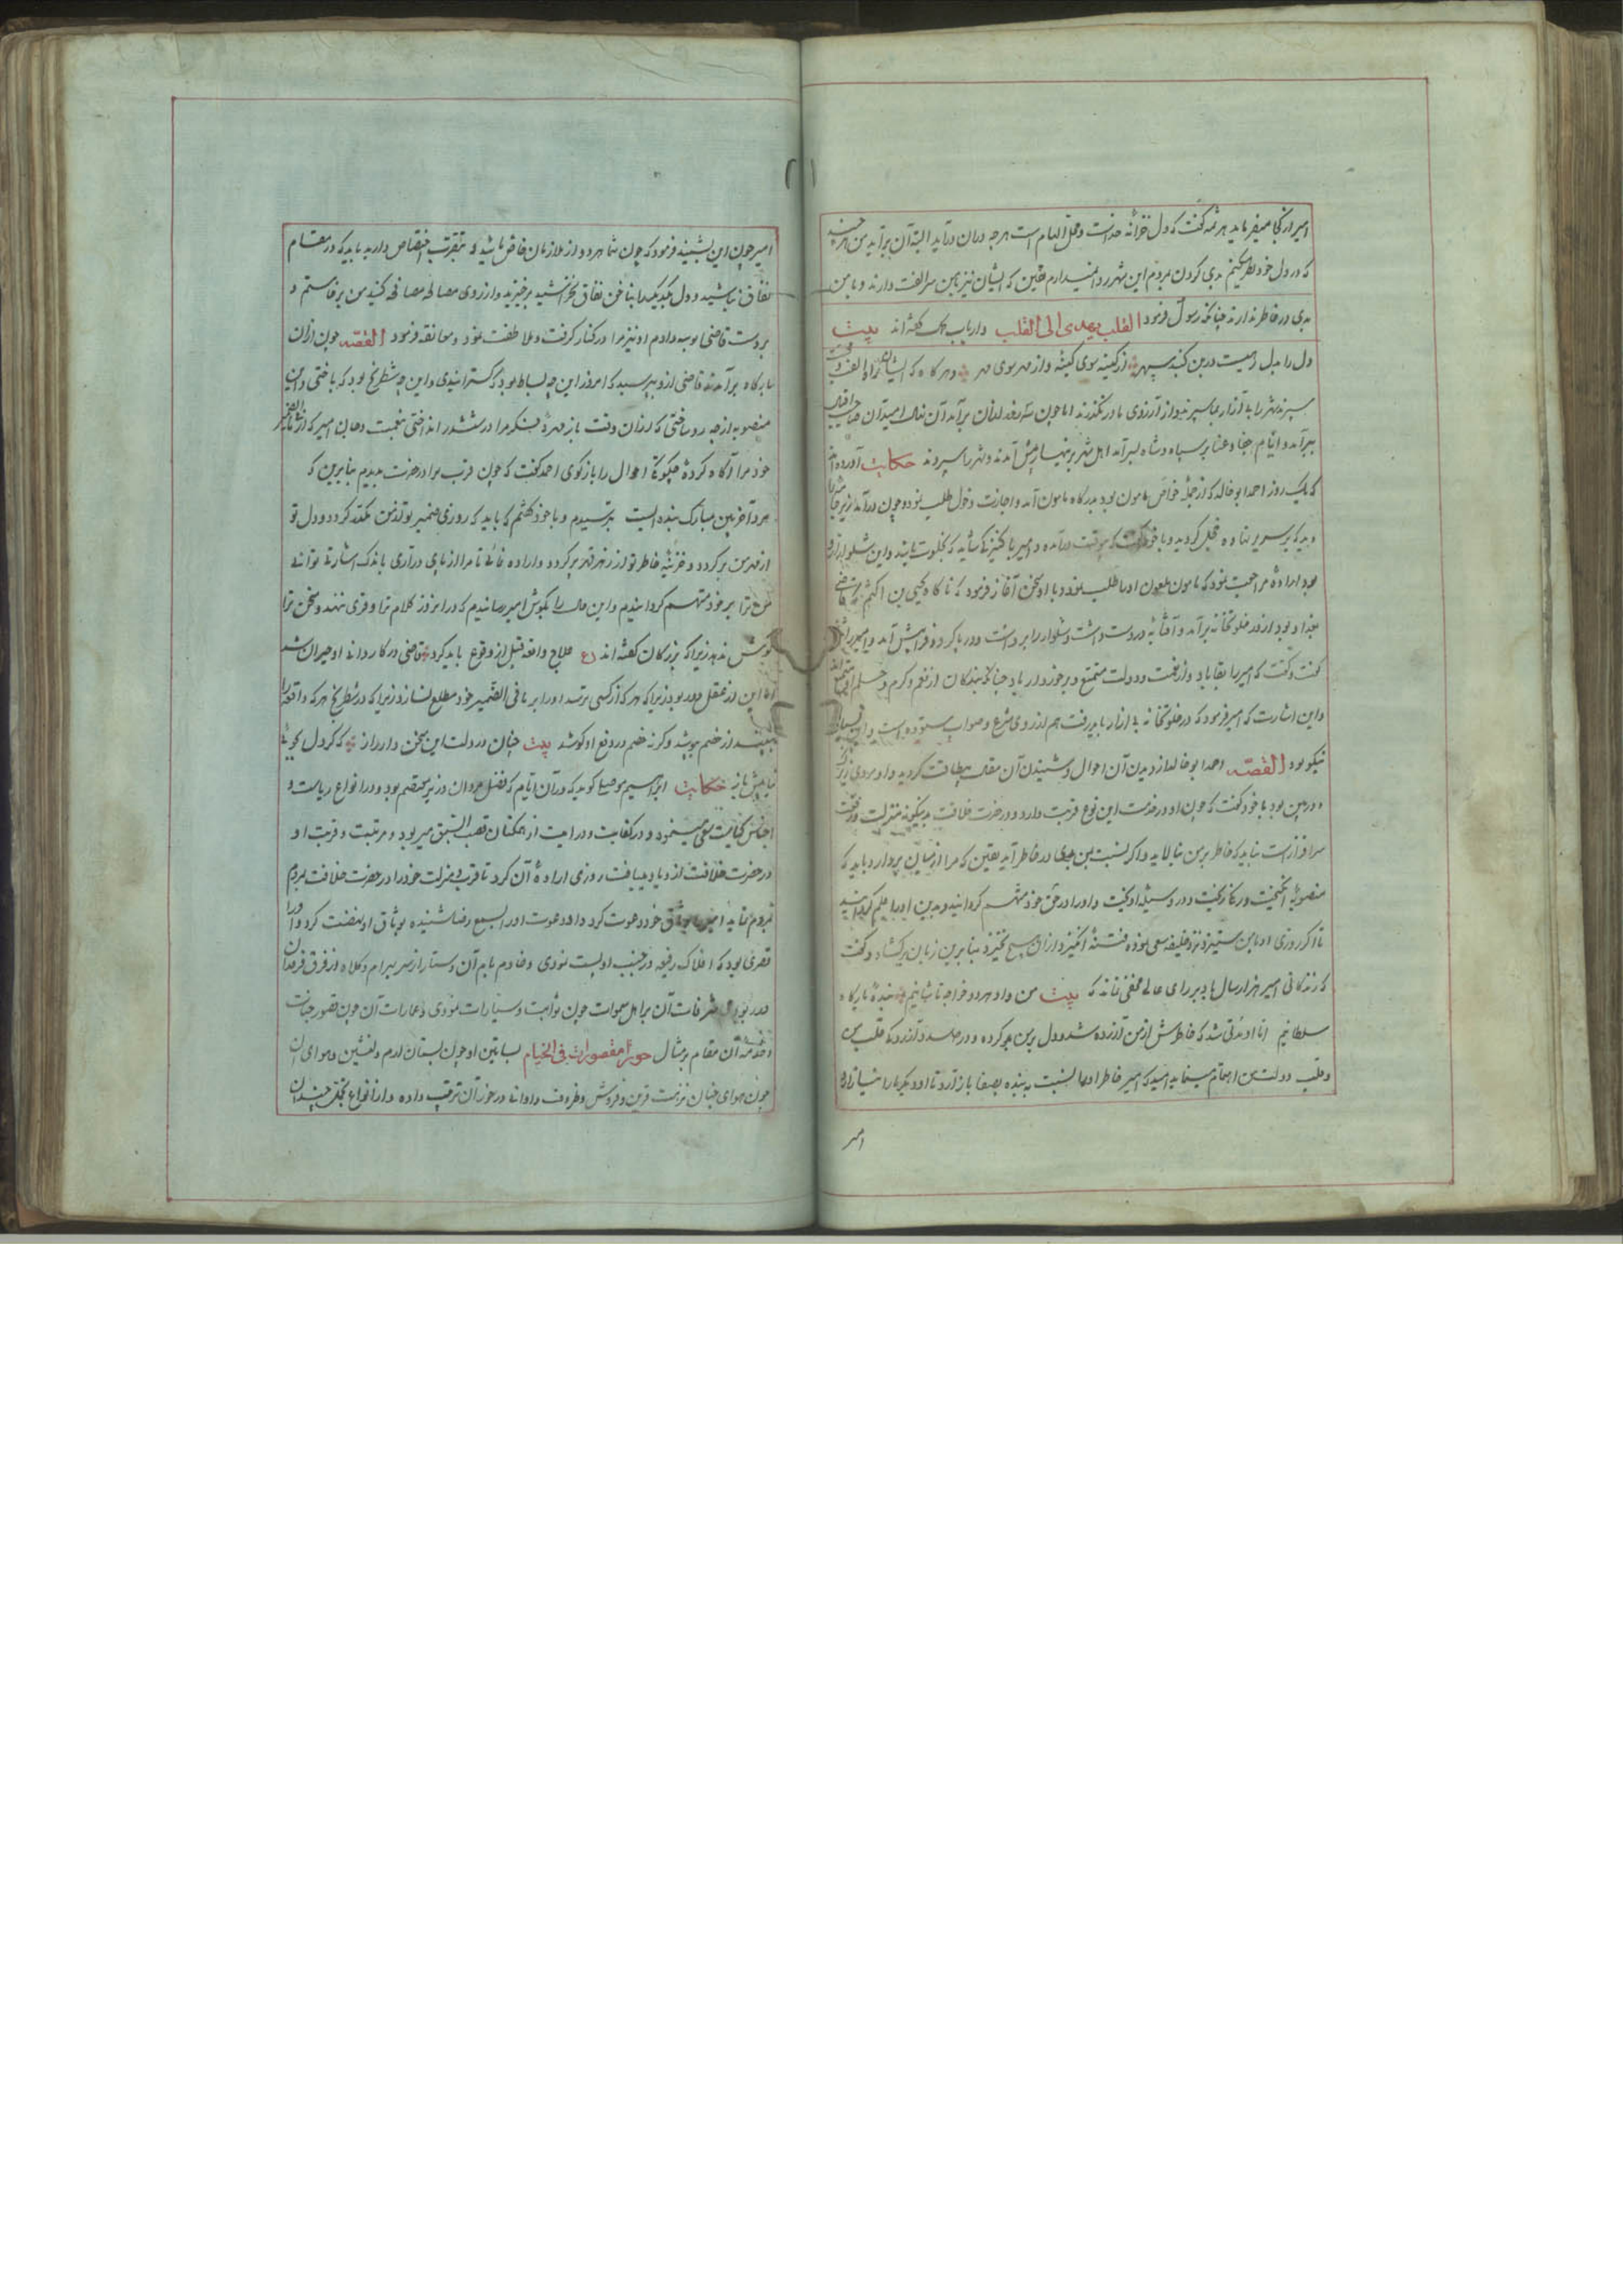 امیر از کجا میفرماید هرثمه گفت که دل خزانه خداست و محل الهام است هرچه در آن درآید البته آن برآید من هر چند
که در دل خود نظر میکنم بدی کردن بمردم این شهر روا نمیدارم یقین که ایشان نیز با من سر الفت دارند و با من
بدی در خاطر ندارند چنانکه رسول فرمود القلب یهدی الی القلب و ارباب گفته اند بیت
دل را بدل رهیست درین گنبد سپهر از کینه سوی کینه و از مهر سوی مهر و هرگاه که ایشان راه الفت
سپرند شهر را بی آزار بما سپرند و از آرزوی ما درنگذرند اما چون
برآمد و ایام جفا و عنا بر سپاه و شاه بسر آمد اهل شهر بزنهار پیش آمدند و شهر را سپردند حکایت آورده اند
که یک روز احمد ابو خالد که از جمله خواص مامون بود بدرگاه مامون آمد و اجازت دخول طلب نمود و چون درآمد
دید که بر سریر نهاده خجل گردید و با خود گفت که بیوقت درآمده و امیر با کنیزکی شاید که بخلوت باشد و این شلوار از
اراده مراجعت نمود که مامون او را طلب نمود و با او سخن آغاز فرمود که ناگاه یحیی بن اکثم که قاضی
بغداد بود از در خلوتخانه برآمد و آفتابه در دست داشت و شلوار را برداشت و در پا کرد و فراپیش آمد و امیر را
گفت و گفت که امیر را بقا باد و از نعمت و دولت متمتع و برخوردار باد چنانکه بندگان از نعم و کرم و حلم او
و این اشارت که امیر فرمود که در خلوتخانه بی ازار باید رفت هم از روی شرع و صواب ستوده است و
نیکو بود القصه احمد ابو خالد از دیدن آن احوال و شنیدن آن مقال بیطاقت گردید و او مردی زیرک
و دوربین بود با خود گفت که چون او در خدمت این نوع قربت دارد و در حضرت خلافت بدینگونه منزلت و رفعت
سرافراز است نباید که خاطر بر من بیالاید و اگر نسبت بمن بدی در خاطر آید یقین که مرا از میان بردارد باید که
منصوبه انگیخت و رنگ ریخت و در وسیله آویخت و او را در حق خود متهم گردانید و بدین او را ملزم گردانید
تا اگر روزی او با من ستیزد و نزد خلیفه سعی نموده فتنه انگیزد از آن هیچ نخیزد بنابرین زبان برگشاد و گفت
که زندگانی امیر هزار سال باد بر رای عالی مخفی نماند که بیت من و او هر دو خواجه تاشانیم بنده بارگاه
سلطانیم اما او مدتی شد که خاطرش از من آزرده شده و دل بر من بد کرده و در صدد آزردن قلب من
و قلب دولت من اهتمام مینماید امید که امیر خاطر او را نسبت به بنده بصفا باز آرد تا او دیگر ما را نیازارد
امیر
امیر چون این بشنید فرمود که چون شما هر دو از ملازمان خاص باشید و بتقرب اختصاص دارید باید که در مقام
نفاق نباشید و دل یکدیگر را بناخن نفاق نخراشید برخیزید و از روی مصالحه مصافحه کنید من برخاستم و
بر دست قاضی بوسه دادم او نیز مرا در کنار گرفت و ملاطفت نمود و معانقه فرمود القصه چون از آن
بارگاه برآمدند قاضی ازو پرسید که امروز این چه بساط بود که گسترانیدی و این چه شطرنج بود که باختی و این
منصوبه از چه رو ساختی که از آن وقت باز مهره فکر مرا در ششدر انداختی
خود مرا آگاه کرده چگونگی احوال را بازگوی احمد گفت که چون قرب برادر حضرت بدیدم بنابرین که
مرد آخربین مبارک بنده ایست بترسیدم و با خود گفتم که باید که روزی ضمیر تو از من مکدر گردد و دل تو
از مهر من برگردد و خزینه خاطر تو از زهر قهر پر گردد و اراده فنای ما را از پای درآری باندک اشارتی توانی
من ترا بر خود متهم گردانیدم و این حال را بگوش امیر رسانیدم که در آن روز کلام ترا وقری ننهد و سخن ترا
گوش ندهد زیرا که بزرگان گفته اند ع علاج واقعه قبل از وقوع باید کرد قاضی در کاردانی او حیران شد
اما این از عقل دور بود زیرا که هر که از کسی ترسد او را بر ما فی الضمیر خود مطلع نسازد زیرا که در شطرنج هر که واقعه را
بیند از خصم بپوشد و گرنه خصم در دفع او کوشد بیت چنان در دلت این سخن دار راز که گر دل بجوئی
نیابیش باز حکایت ابراهیم موصلی گوید که در آن ایام که فضل مروان وزیر معتصم بود و در انواع ریاست و
اجناس کفایت سعی مینمود و در کفایت و درایت از همگنان قصب السبق میربود و مرتبت و قربت او
در حضرت خلافت ازدیاد میافت روزی اراده آن کرد تا قرب و منزلت خود را در حضرت خلافت بمردم
بنماید امیر را بوثاق خود دعوت کرد و او دعوت او را بسمع رضا شنیده بوثاق او نهضت کرد و او را
قصری بود که افلاک رفیعه در جنب او پست نمودی و خادم بام آن دستار از سر بهرام و کلاه از فرق فرقدان
در ربودی شرفات آن بر اهل سموات چون ثوابت و سیارات نمودی و عمارات آن چون قصور جنات
و خدمه آن مقام بر مثال حور مقصورات فی الخیام بساتین او چون بستان ارم دلنشین و هوای آن
چون هوای جنان نزهت قرین و فروش و ظروف و اوانی درخور آن ترتیب داده و از انواع تجمل چندان